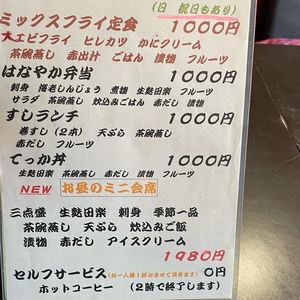 (日 祝日もあり)
ミックスフライ定食 1000円
大エビフライ ヒレカツ かにクリーム
茶碗蒸し 赤出汁 ごはん 漬物 フルーツ
はなやか弁当 1000円
刺身 海老しんじょう 煮物 生麩田楽 フルーツ
サラダ 茶碗蒸し 炊込みごはん 赤だし 漬物
すしランチ 1000円
巻すし(2本) 天ぷら 茶碗蒸し
赤だし フルーツ
てっか丼 1000円
生麩田楽 茶碗蒸し 赤だし 漬物 フルーツ
NEW お昼のミニ会席
三点盛 生麩田楽 刺身 季節一品
茶碗蒸し 天ぷら 炊込みご飯
漬物 赤だし アイスクリーム
1980円
セルフサービス(お一人様1杯とさせて頂きます) 0円
ホットコーヒー (2時で終了します)